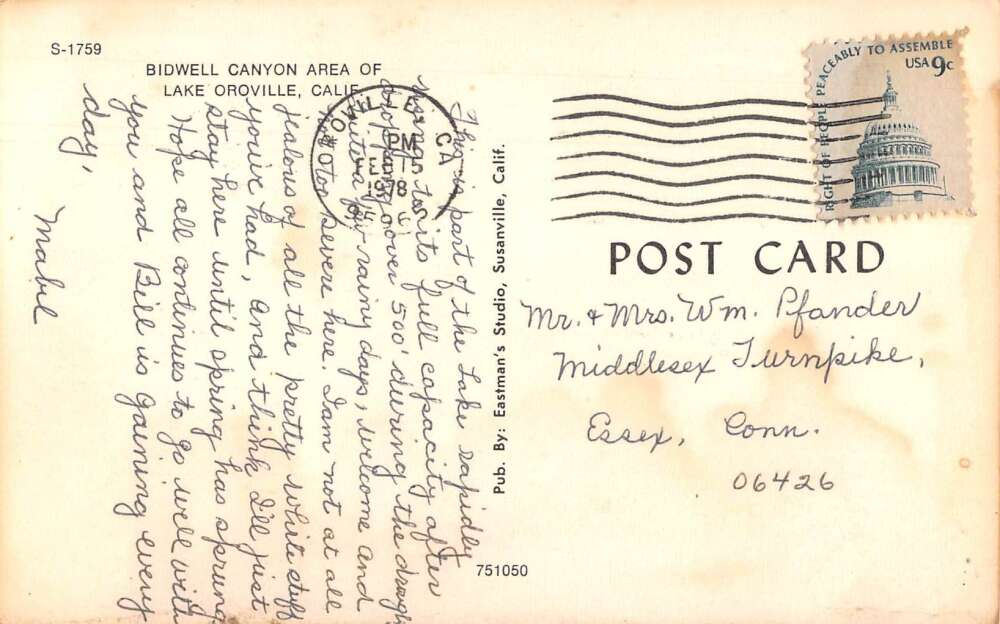 S-1759
BIDWELL CANYON AREA OF
LAKE OROVILLE, CALIF.
This is part of the Lake rapidly
to its full capacity after
over 500' during the
few rainy days, welcome and
not severe here. I am not at all
jealous of all the pretty white stuff
you've had, and think I'll just
stay here until spring has sprung
Hope all continues to go well with
you and Bill is gaining every
day,
Mabel
Pub. By: Eastman's Studio, Susanville, Calif.
751050
OROVILLE CA
PM
FEB
1978
RIGHT OF PEOPLE PEACEABLY TO ASSEMBLE
USA 9c
POST CARD
Mr. + Mrs. Wm. Pfander
Middlesex Turnpike,
Essex, Conn.
06426